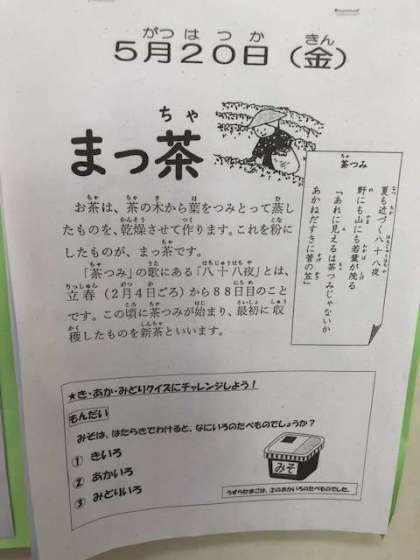 5月20日(金)
まっ茶
お茶は、茶の木から葉をつみとって蒸し
たものを、乾燥させて作ります。これを粉に
したものが、まっ茶です。
「茶つみ」の歌にある「八十八夜」とは、
立春(2月4日ごろ)から88日目のこと
です。この頃に茶つみが始まり、最初に収
穫したものを新茶といいます。
茶つみ
夏も近づく八十八夜
野にも山にも若葉が茂る
「あれに見えるは茶つみじゃないか
あかねだすきに菅の笠」
★き・あか・みどりクイズにチャレンジしよう!
もんだい
みそは、はたらきでわけると、なにいろのたべものでしょうか?
① きいろ
② あかいろ
③ みどりいろ
みそ
うずらたまごは、②のあかいろのたべものでした。